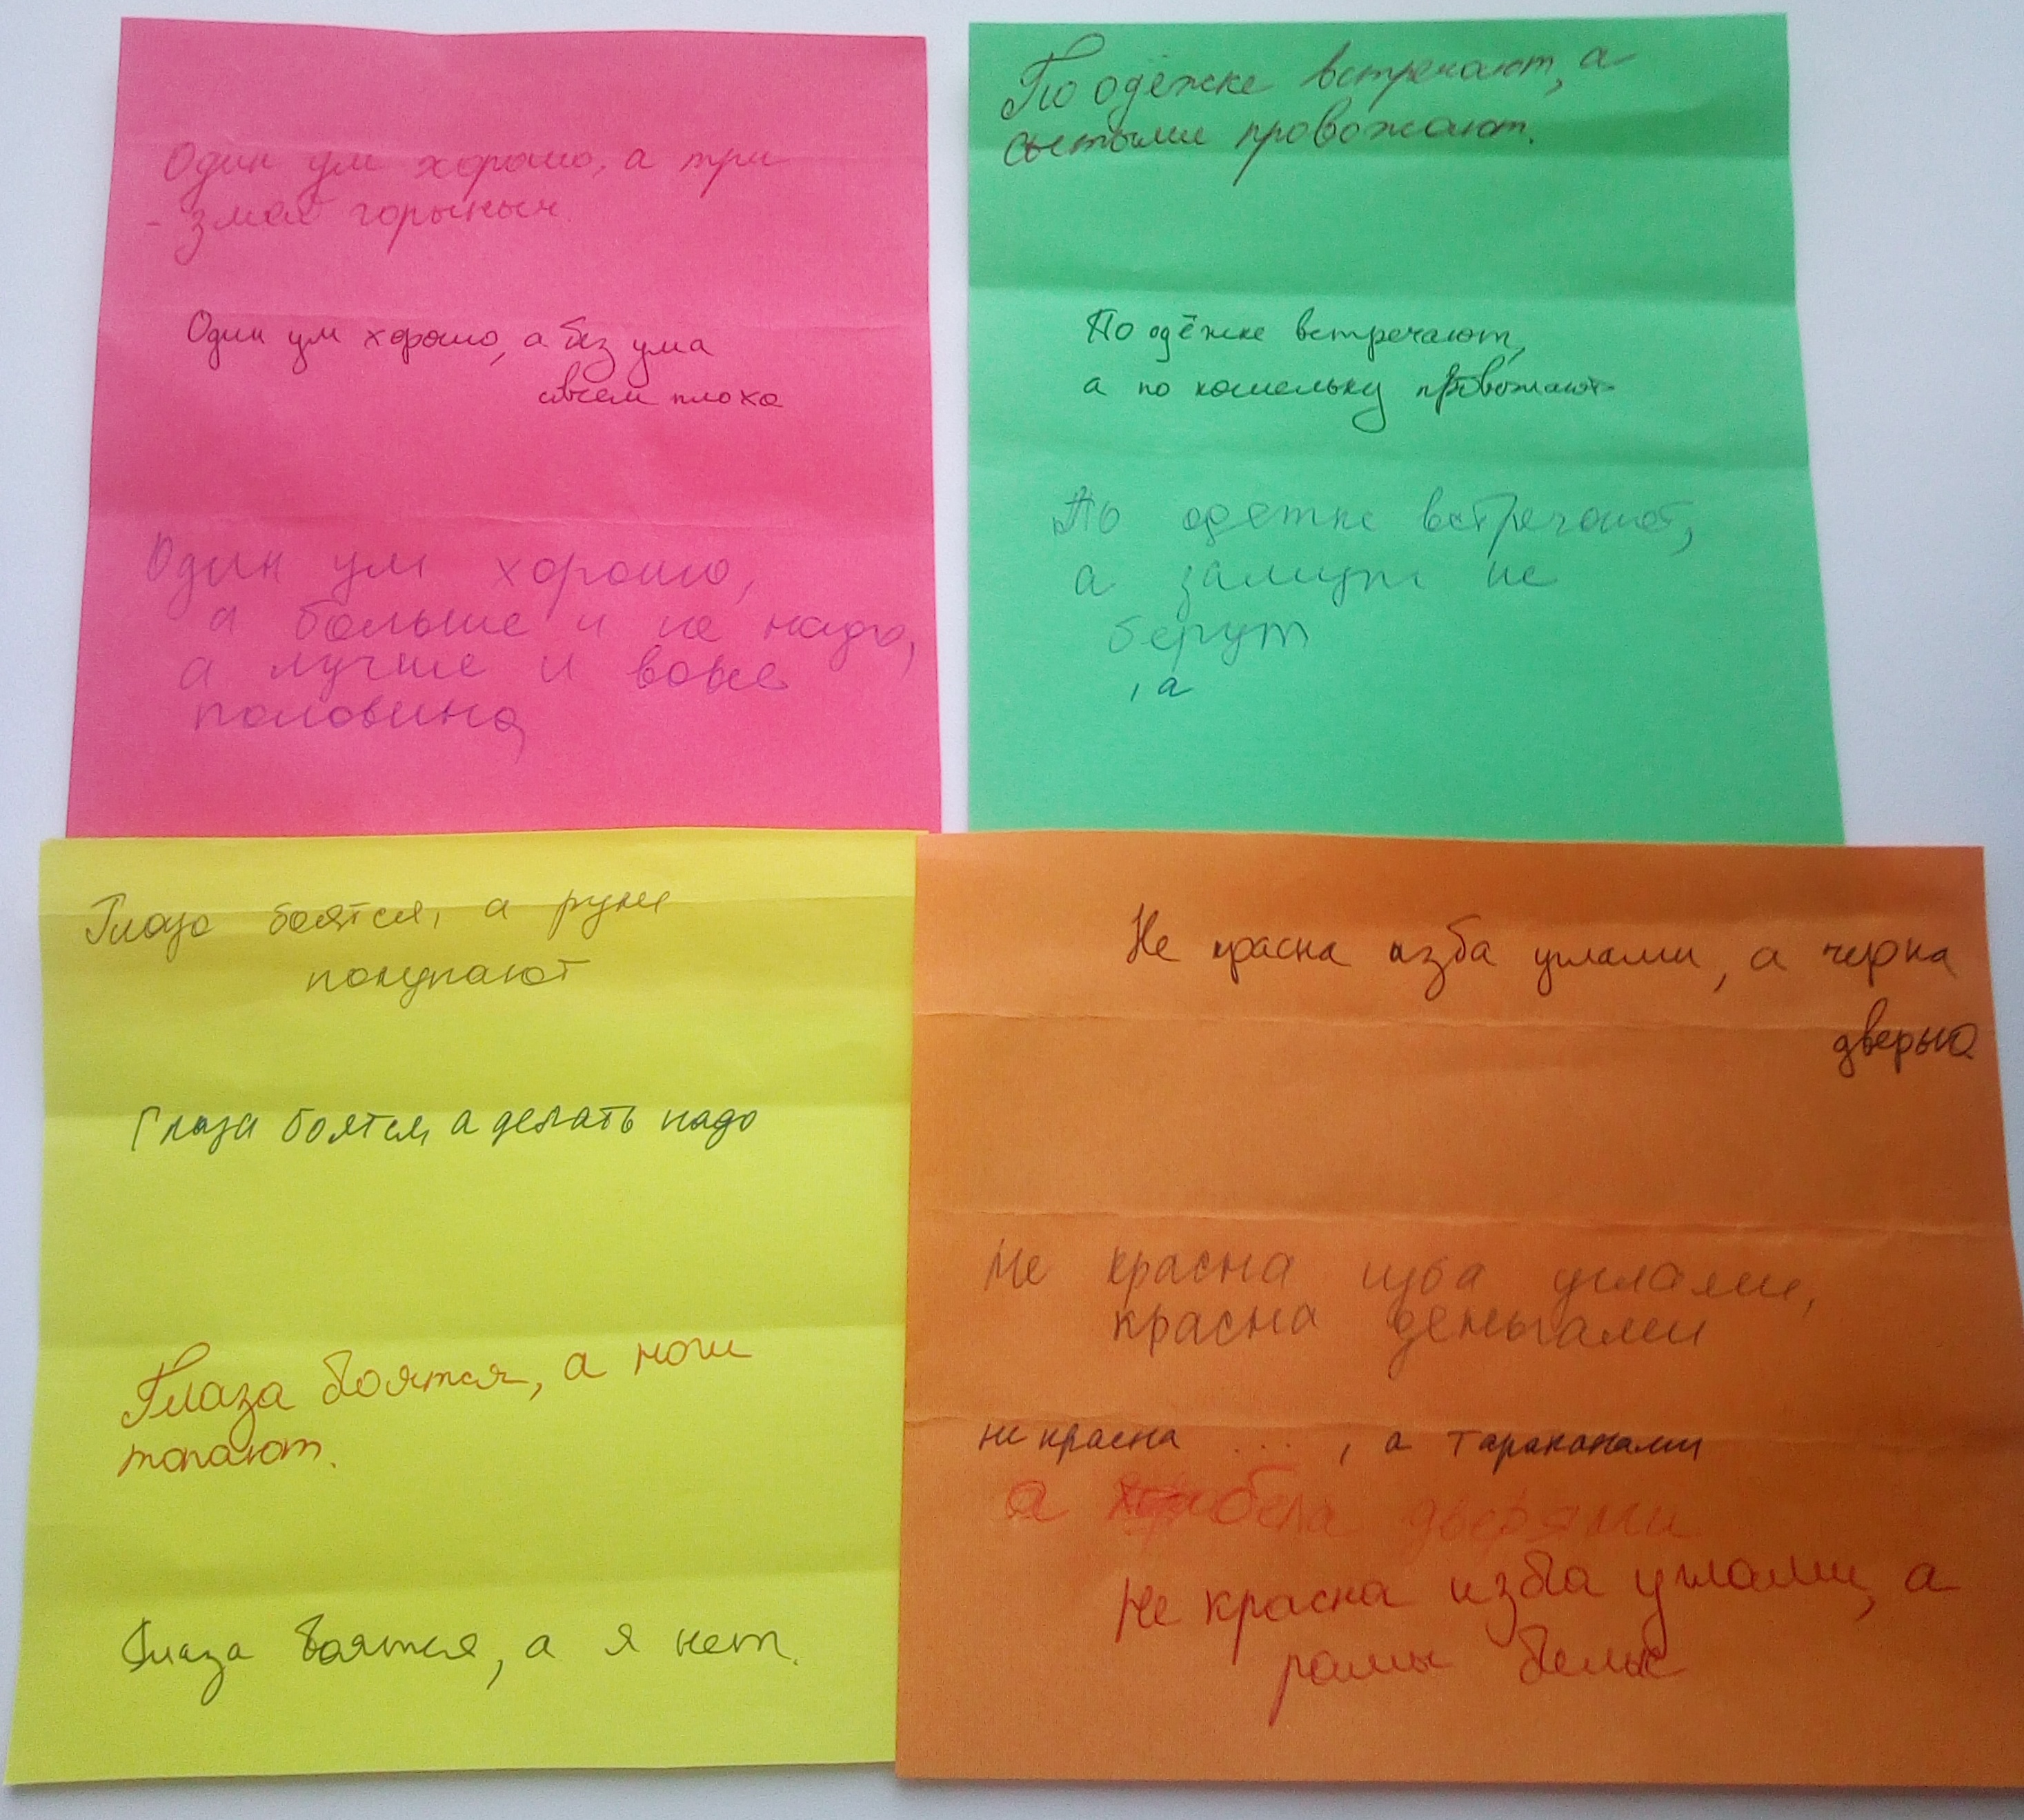 Один ум хорошо, а три
- змей горыныч.
Один ум хорошо, а без ума
совсем плохо
Один ум хорошо,
а больше и не надо,
а лучше и вовсе
половина
По одёжке встречают, а
сытыми провожают.
По одёжке встречают,
а по кошельку провожают
По одежке встречают,
а замуж не
берут
, а
Глаза боятся, а руки
покупают
Глаза боятся, а делать надо
Глаза боятся, а ноги
топают.
Глаза боятся, а я нет.
Не красна изба углами, а черна
дверью
Не красна изба углами,
красна деньгами
не красна ... , а тараканами
а бела дверями
Не красна изба углами, а
рамы белые